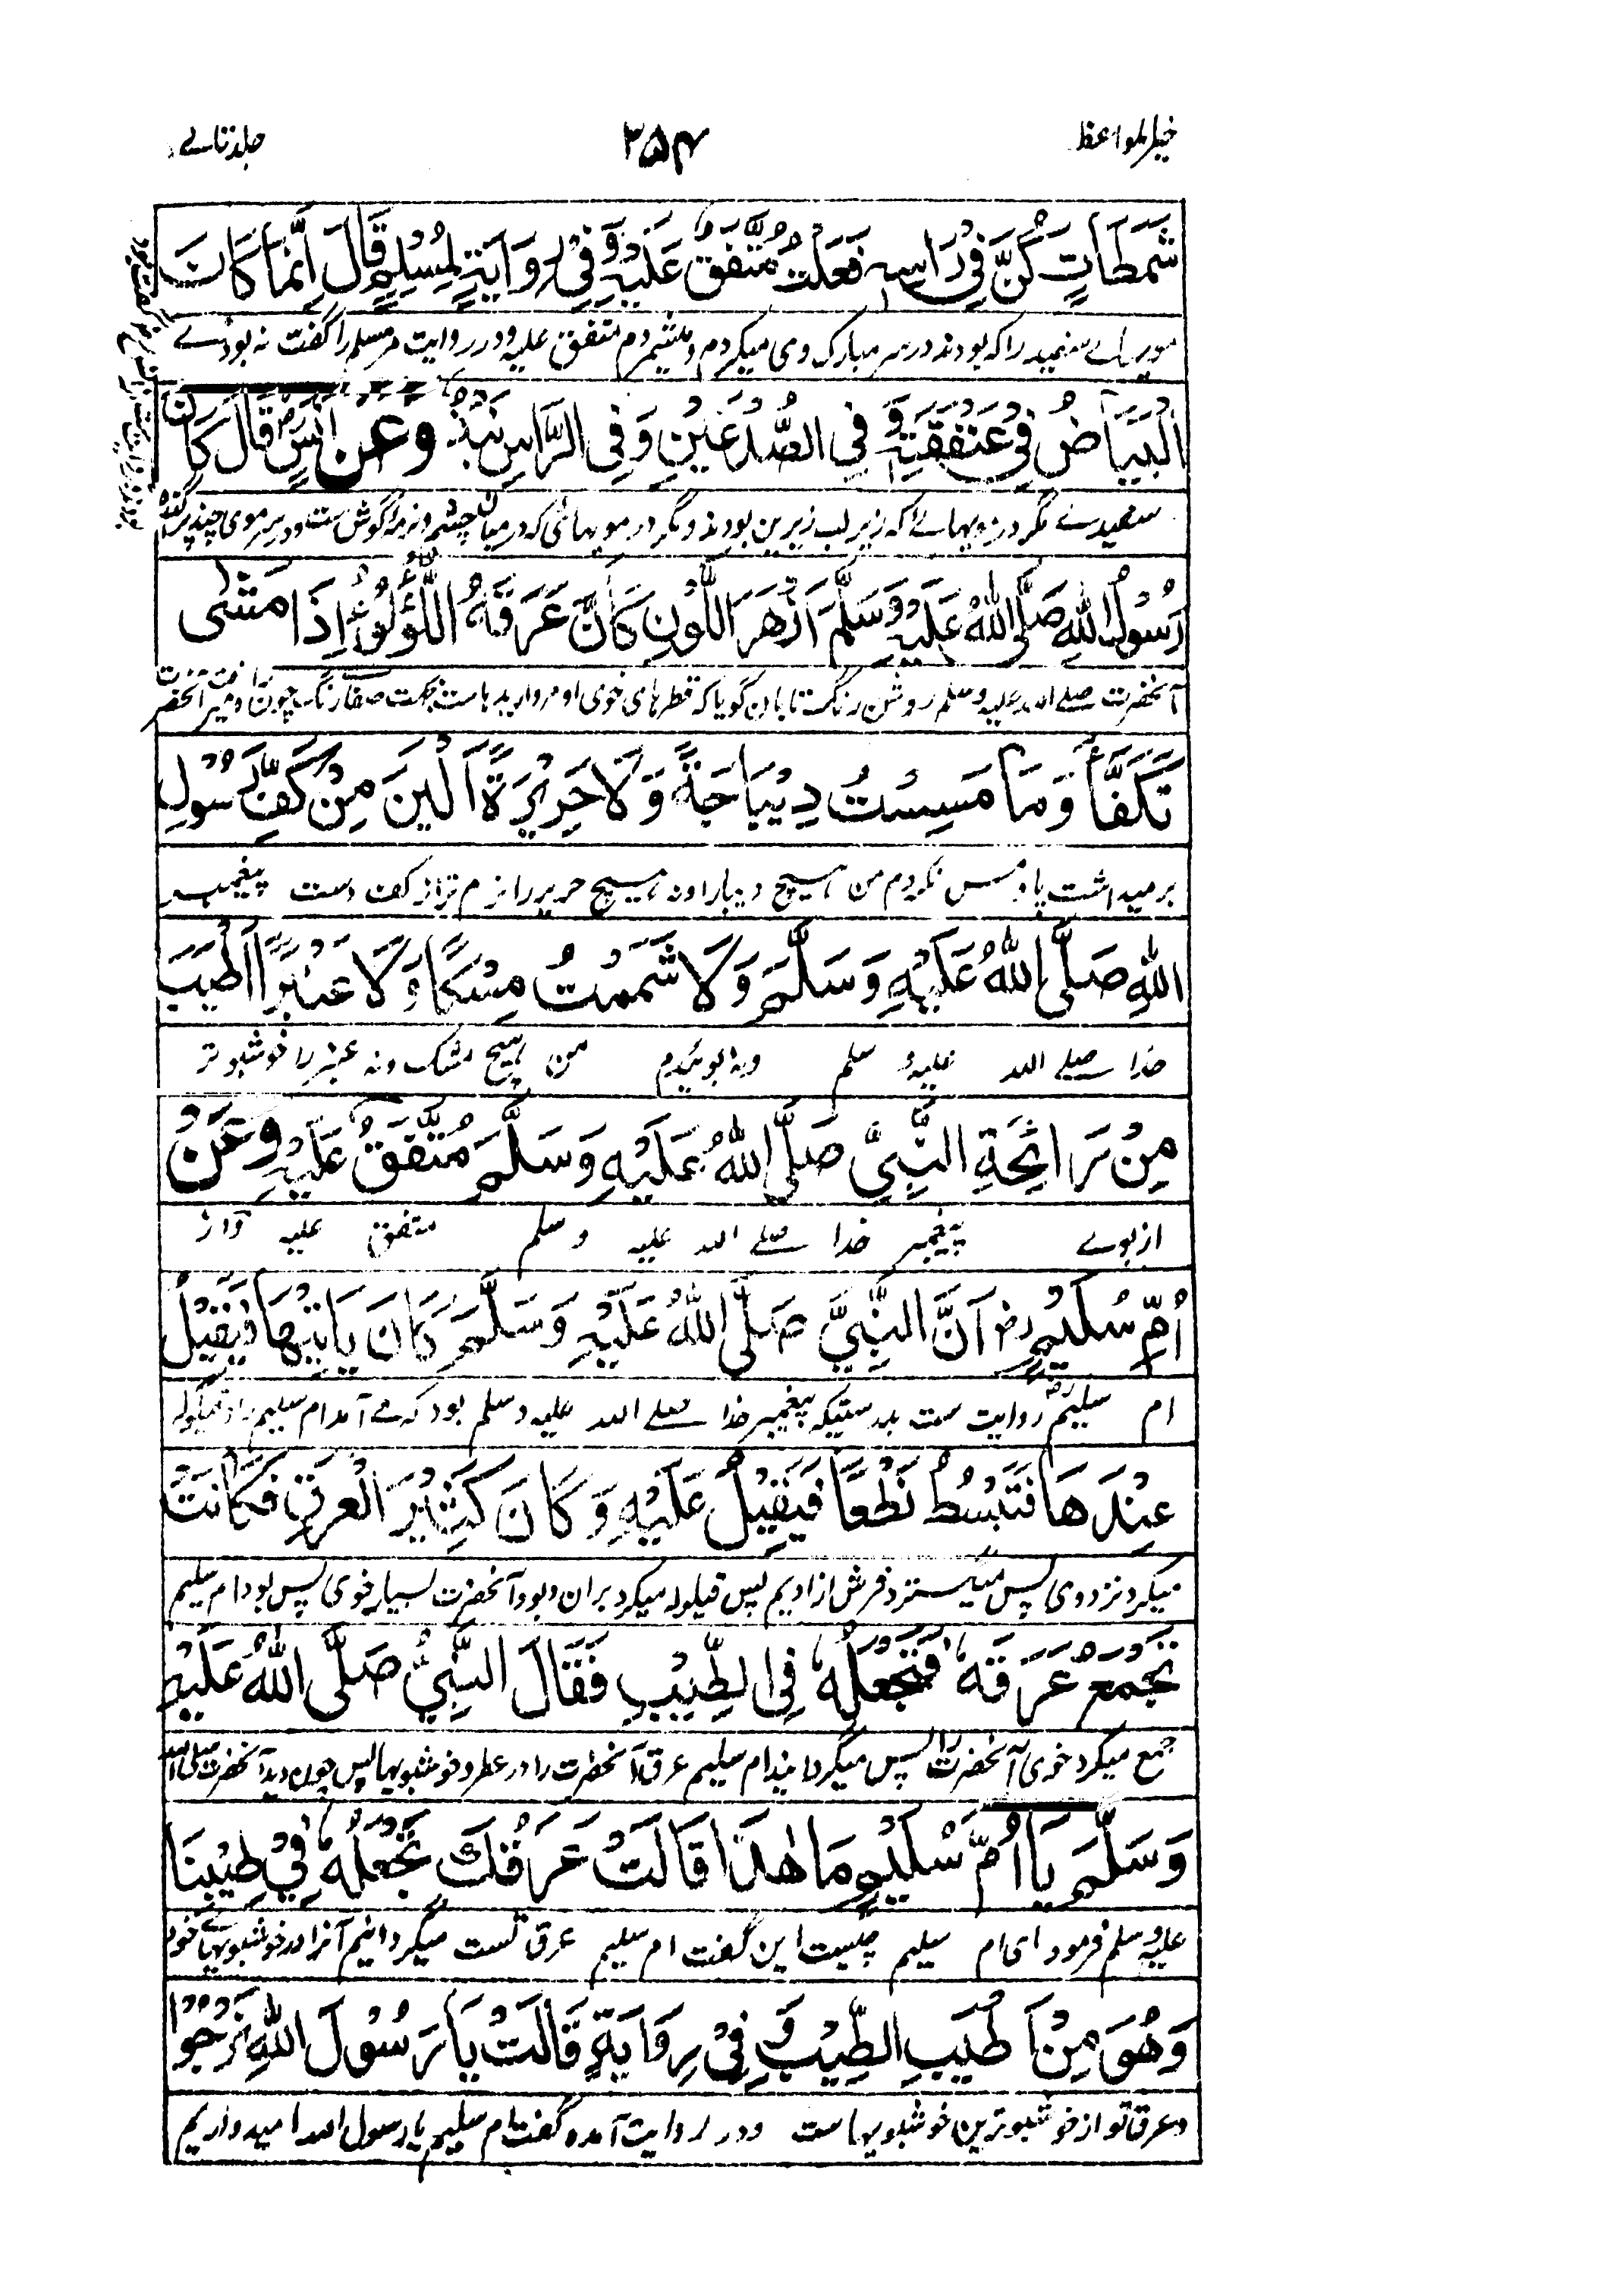 خیر المواعظ ۳۵۴ جلد ثانے
شَمَطَاتٍ كُنَّ فِیْ رَاسِهٖ فَعَلْتُ مُتَّفَقٌ عَلَیْهِ وَفِیْ رِوَایَةٍ لِمُسْلِمٍ قَالَ اِنَّمَا كَانَ
سفید را که بودند در سر مبارک وی میکردم متفق علیه و در روایت مر مسلم را گفت نه بود
الْبَیَاضُ فِیْ عَنْفَقَتِهٖ وَ فِی الصُّدْغَیْنِ وَفِی الرَّاسِ نَبْذٌ وعن اَنَسٍ رض قَالَ كَانَ
سفیدے مگر در مویهائے که زیر لب زیرین بودند و مگر در مویهائی که در میان چشم و نرمه گوش ست و در سر موی چند پراگنده
رَسُوْلُ اللّٰهِ صَلَّی اللّٰهُ عَلَیْهِ وَسَلَّمَ اَزْهَرَ اللَّوْنِ كَاَنَّ عَرَقَهُ اللُّؤْلُؤُ اِذَا مَشٰی
آنحضرت صلے الله علیه وسلم روشن رنگ تابان گویا که قطرهای خوی او مرواریدهاست بجهت صفا رنگ چون
تَكَفَّاَ وَمَا مَسِسْتُ دِیْبَاجَةً وَّلَا حَرِیْرَةً اَلْیَنَ مِنْ كَفِّ رَسُوْلِ
برمیداشت پا و مس نکردم من هیچ دیبا را و نه هیچ حریر را نرم تر از کف دست پیغمبر
اللّٰهِ صَلَّی اللّٰهُ عَلَیْهِ وَسَلَّمَ وَلَا شَمَمْتُ مِسْكًا وَلَا عَنْبَرًا اَطْیَبَ
خدا صلے الله علیه وسلم و نه ابوئیدم من هیچ مشک و نه عنبر را خوشبو تر
مِنْ رَائِحَةِ النَّبِیِّ صَلَّی اللّٰهُ عَلَیْهِ وَسَلَّمَ مُتَّفَقٌ عَلَیْهِ وَعَنْ
از بوے پیغمبر خدا صلے الله علیه وسلم متفق علیه و از
اُمِّ سُلَیْمٍ رض اَنَّ النَّبِیَّ صَلَّی اللّٰهُ عَلَیْهِ وَسَلَّمَ كَانَ یَاتِیْهَا فَیَقِیْلُ
ام سلیم رض روایت ست بدرستیکه پیغمبر خدا صلے الله علیه وسلم بود که مے آمد ام سلیم را و قیلوله
عِنْدَهَا فَتَبْسُطُ نَطْعًا فَیَقِیْلُ عَلَیْهِ وَكَانَ كَثِیْرَ الْعَرَقِ فَكَانَتْ
میکرد نزد وی پس میگسترد فرش از ادیم پس قیلوله میکرد بران و بود آنحضرت بسیار خوی پس بود ام سلیم
تَجْمَعُ عَرَقَهٗ فَتَجْعَلُهٗ فِی الطِّیْبِ فَقَالَ النَّبِیُّ صَلَّی اللّٰهُ عَلَیْهِ
جمع میکرد خوی آنحضرت را پس میگردانید ام سلیم عرق آنحضرت را در عطر و خوشبویها پس چون دید آنحضرت صلی الله
وَسَلَّمَ یَا اُمَّ سُلَیْمٍ مَا هٰذَا قَالَتْ عَرَقُكَ نَجْعَلُهٗ فِیْ طِیْبِنَا
علیه وسلم فرمود ای ام سلیم چیست این گفت ام سلیم عرق تست میگردانیم آنرا در خوشبویهائے خود
وَهُوَ مِنْ اَطْیَبِ الطِّیْبِ وَ فِیْ رِوَایَةٍ قَالَتْ یَا رَسُوْلَ اللّٰهِ نَرْجُوْا
و عرق تو از خوشبو ترین خوشبویهاست و در روایت آمده گفت ام سلیم یا رسول الله امید واریم